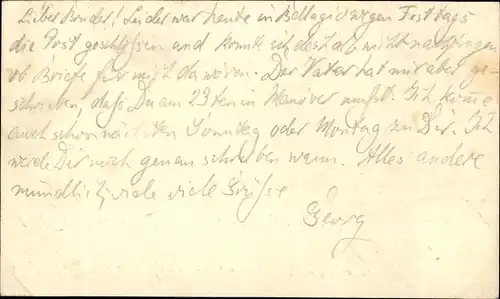 Lieber Bruder! Leider war heute in Bellagio wegen Festtags
die Post geschlossen und konnte ich deshalb nicht nachfragen
ob Briefe für mich da wären. Der Vater hat mir aber ge-
schrieben, daß Du am 23ten in Manöver mußt. Ich komme
auch schon nächsten Sonntag oder Montag zu Dir. Ich
werde Dir noch genau schreiben wann. Alles andere
mündlich, viele viele Grüße
Georg